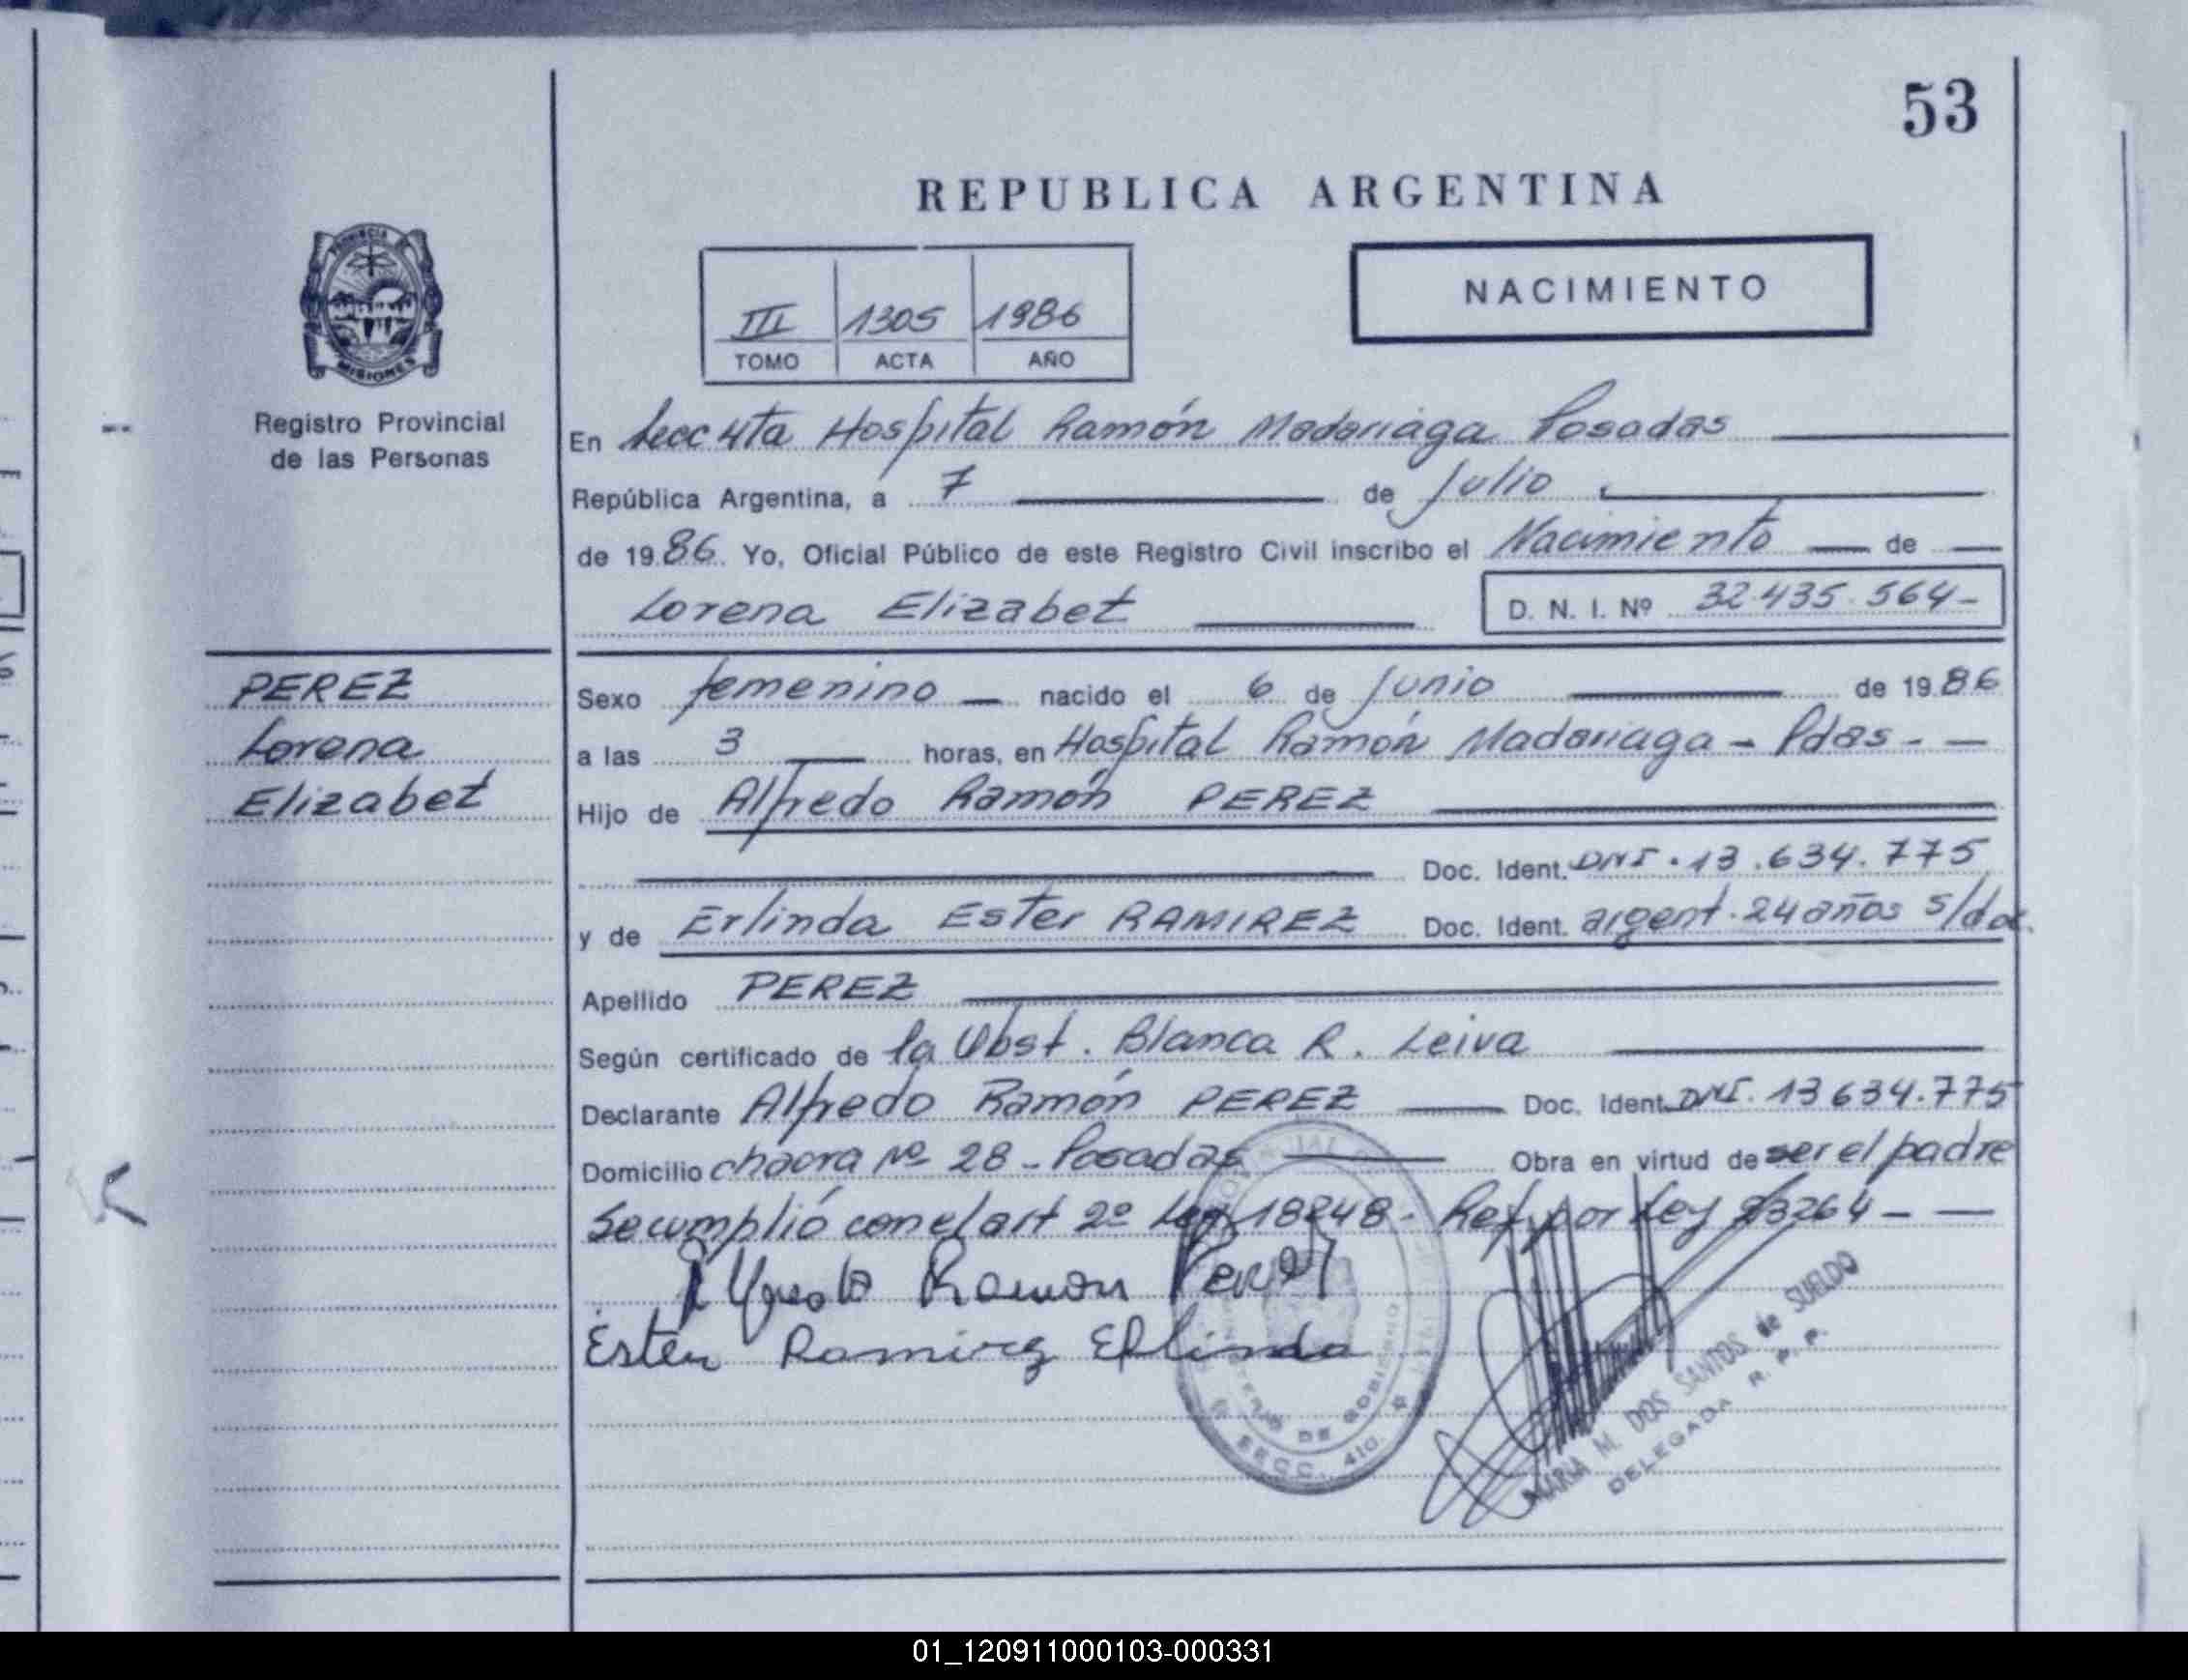 53
REPUBLICA ARGENTINA
PROVINCIA DE
MISIONES
Registro Provincial
de las Personas
III 1305 1986
TOMO ACTA AÑO
NACIMIENTO
En Secc 4ta Hospital Ramón Madariaga Posadas
República Argentina, a 7 de Julio
de 1986. Yo, Oficial Público de este Registro Civil inscribo el Nacimiento de
Lorena Elizabet D. N. I. Nº 32.435.564-
PEREZ
Lorena
Elizabet
Sexo femenino nacido el 6 de Junio de 1986
a las 3 horas, en Hospital Ramón Madariaga - Pdas -
Hijo de Alfredo Ramón PEREZ
Doc. Ident. DNI. 13.634.775
y de Erlinda Ester RAMIREZ Doc. Ident. argent. 24 años s/doc.
Apellido PEREZ
Según certificado de la Obst. Blanca R. Leiva
Declarante Alfredo Ramón PEREZ Doc. Ident. DNI. 13634.775
Domicilio chacra Nº 28 - Posadas Obra en virtud de ser el padre
Se cumplió con el art 2º Ley 18248 - Ref. por Ley 23264 -
Alfredo Ramon Perez
Ester Ramirez Erlinda
MINISTERIO DE GOBIERNO
SECC. 4ta.
MARIA M. DOS SANTOS de SUELDO
DELEGADA R. P. P.
01_120911000103-000331